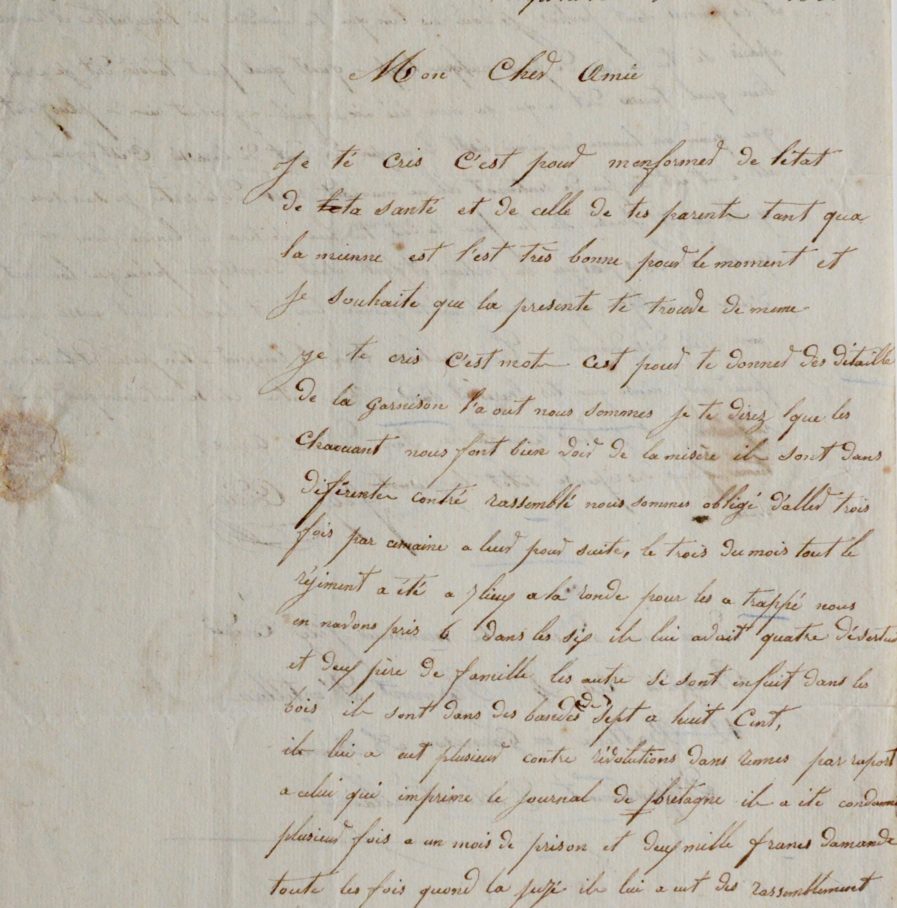 Mon Cher Amie
Je té cris c'est pour menformer de l'état
de ta santé et de celle de tes parents tant qua
la mienne est l'est très bonne pour le moment et
Je souhaite que la presente te trouve de meme
Je te cris c'est mots cest pour te donner des détaille
De la garnison l'a out nous sommes Je te direz que les
chacuant nous font bien voir de la misère ils sont dans
diférente contré rassemblé nous sommes obligé d'aller trois
fois par cemaine a leur pour suite, le trois du mois tout le
régiment a été a 7 lieux a la ronde pour les a trappé nous
en navons pris 6 dans les six ils lui avait quatre déserteur
et deux père de famille les autre se sont enfuit dans les
bois ils sont dans des bandes de sept a huit Cent,
ils lui a eut plusieur contre révolutions dans rennes par raport
a celui qui imprime le journal de bretagne ils a ite condamné
plusieur fois a un mois de prison et deux mille francs damande
toute les fois quond la jugé ils lui a eut des rassemblement